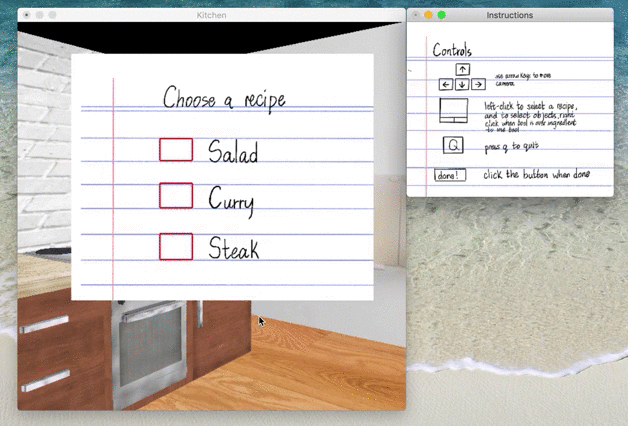 Kitchen
Choose a recipe
Salad
Curry
Steak
Instructions
Controls
use arrow keys to move
camera
left-click to select a recipe,
and to select objects, right
click when tool is over ingredient
to use tool
Q
press q to quit
done!
click the button when done